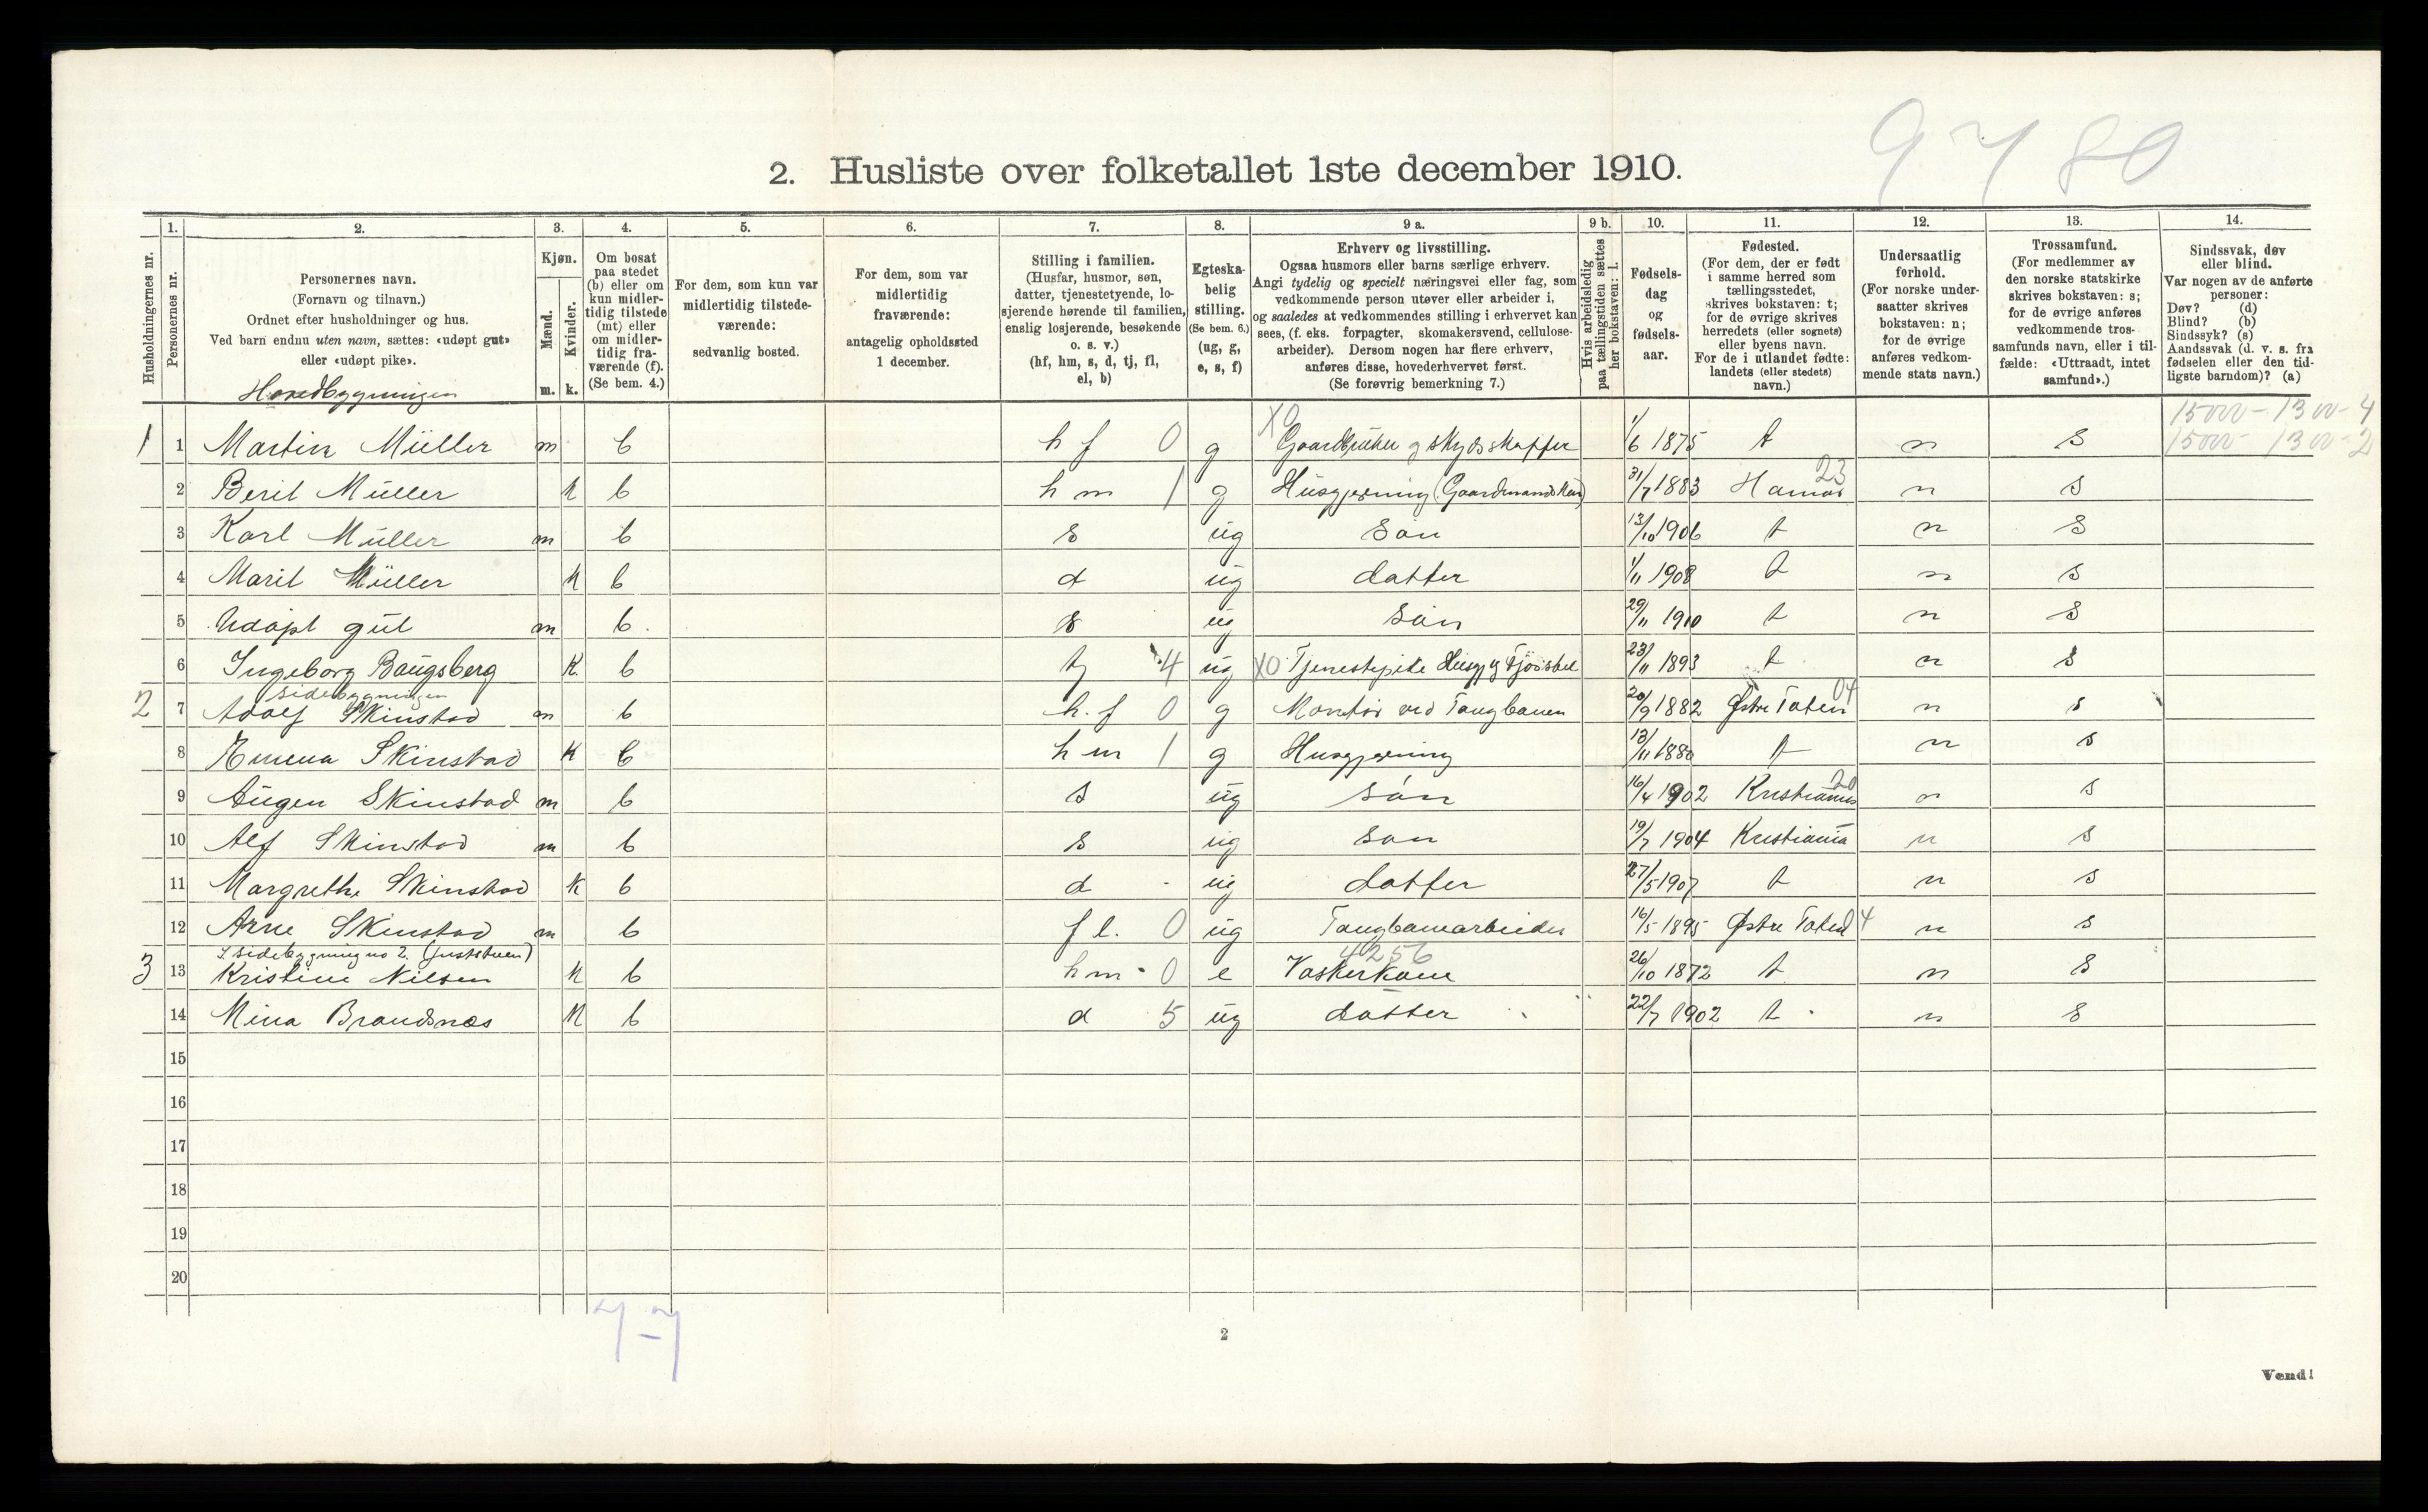 9780
2. Husliste over folketallet 1ste december 1910.
Husholdningernes nr.
1. Personernes nr.
2. Personernes navn.
(Fornavn og tilnavn.)
Ordnet efter husholdninger og hus.
Ved barn endnu uten navn, sættes: «udøpt gut»
eller «udøpt pike».
Hovedbygningen
3. Kjøn.
Mænd. m.
Kvinder. k.
4. Om bosat
paa stedet
(b) eller om
kun midler-
tidig tilstede
(mt) eller
om midler-
tidig fra-
værende (f).
(Se bem. 4.)
5. For dem, som kun var
midlertidig tilstede-
værende:
sedvanlig bosted.
6. For dem, som var
midlertidig
fraværende:
antagelig opholdssted
1 december.
7. Stilling i familien.
(Husfar, husmor, søn,
datter, tjenestetyende, lo-
sjerende hørende til familien,
enslig losjerende, besøkende
o. s. v.)
(hf, hm, s, d, tj, fl,
el, b)
8. Egteska-
belig
stilling.
(Se bem. 6.)
(ug, g,
e, s, f)
9 a. Erhverv og livsstilling.
Ogsaa husmors eller barns særlige erhverv.
Angi tydelig og specielt næringsvei eller fag, som
vedkommende person utøver eller arbeider i,
og saaledes at vedkommendes stilling i erhvervet kan
sees, (f. eks. forpagter, skomakersvend, cellulose-
arbeider). Dersom nogen har flere erhverv,
anføres disse, hovederhvervet først.
(Se forøvrig bemerkning 7.)
9 b. Hvis arbeidsledig
paa tællingstiden sættes
her bokstaven: l.
10. Fødsels-
dag
og
fødsels-
aar.
11. Fødested.
(For dem, der er født
i samme herred som
tællingsstedet,
skrives bokstaven: t;
for de øvrige skrives
herredets (eller sognets)
eller byens navn.
For de i utlandet fødte:
landets (eller stedets)
navn.)
12. Undersaatlig
forhold.
(For norske under-
saatter skrives
bokstaven: n;
for de øvrige
anføres vedkom-
mende stats navn.)
13. Trossamfund.
(For medlemmer av
den norske statskirke
skrives bokstaven: s;
for de øvrige anføres
vedkommende tros-
samfunds navn, eller i til-
fælde: «Uttraadt, intet
samfund».)
14. Sindssvak, døv
eller blind.
Var nogen av de anførte
personer:
Døv? (d)
Blind? (b)
Sindssyk? (s)
Aandssvak (d. v. s. fra
fødselen eller den tid-
ligste barndom)? (a)
1 1 Martin Müller m b hf 0 g X0 Gaardbruker og skydsskaffer 1/6 1875 t n s
2 Berit Müller k b hm 1 g Husgjerning (Gaardmandskone) 31/7 1883 Hamar 23 n s
3 Karl Müller m b s ug Søn 13/10 1906 t n s
4 Marit Müller k b d ug datter 1/11 1908 t n s
5 Udøpt gut m b s ug Søn 29/11 1910 t n s
6 Ingeborg Baugsberg k b tj 4 ug X0 Tjenestepike Husgj og Fjøsstel 23/11 1893 t n s
Sidebygningen
2 7 Adolf Skinstad m b h.f 0 g Montør ved Taugbanen 20/9 1882 Østre Toten 04 n s
8 Emma Skinstad k b hm 1 g Husgjerning 13/11 1880 t n s
9 Augen Skinstad m b s ug Søn 16/4 1902 Kristiania 20 n s
10 Alf Skinstad m b s ug Søn 19/7 1904 Kristiania n s
11 Margrethe Skinstad k b d ug datter 27/5 1907 t n s
12 Arne Skinstad m b fl. 0 ug Taugbanearbeider 16/5 1895 Østre Toten 04 n s
I sidebygning no 2.
3 13 Kristine Nilsen k b hm 0 e 4256 Vaskerkone 26/10 1872 t n s
14 Mina Brandsnæs k b d 5 ug datter 22/7 1902 t n s
15
16
17
18
19
20
2
Vend!